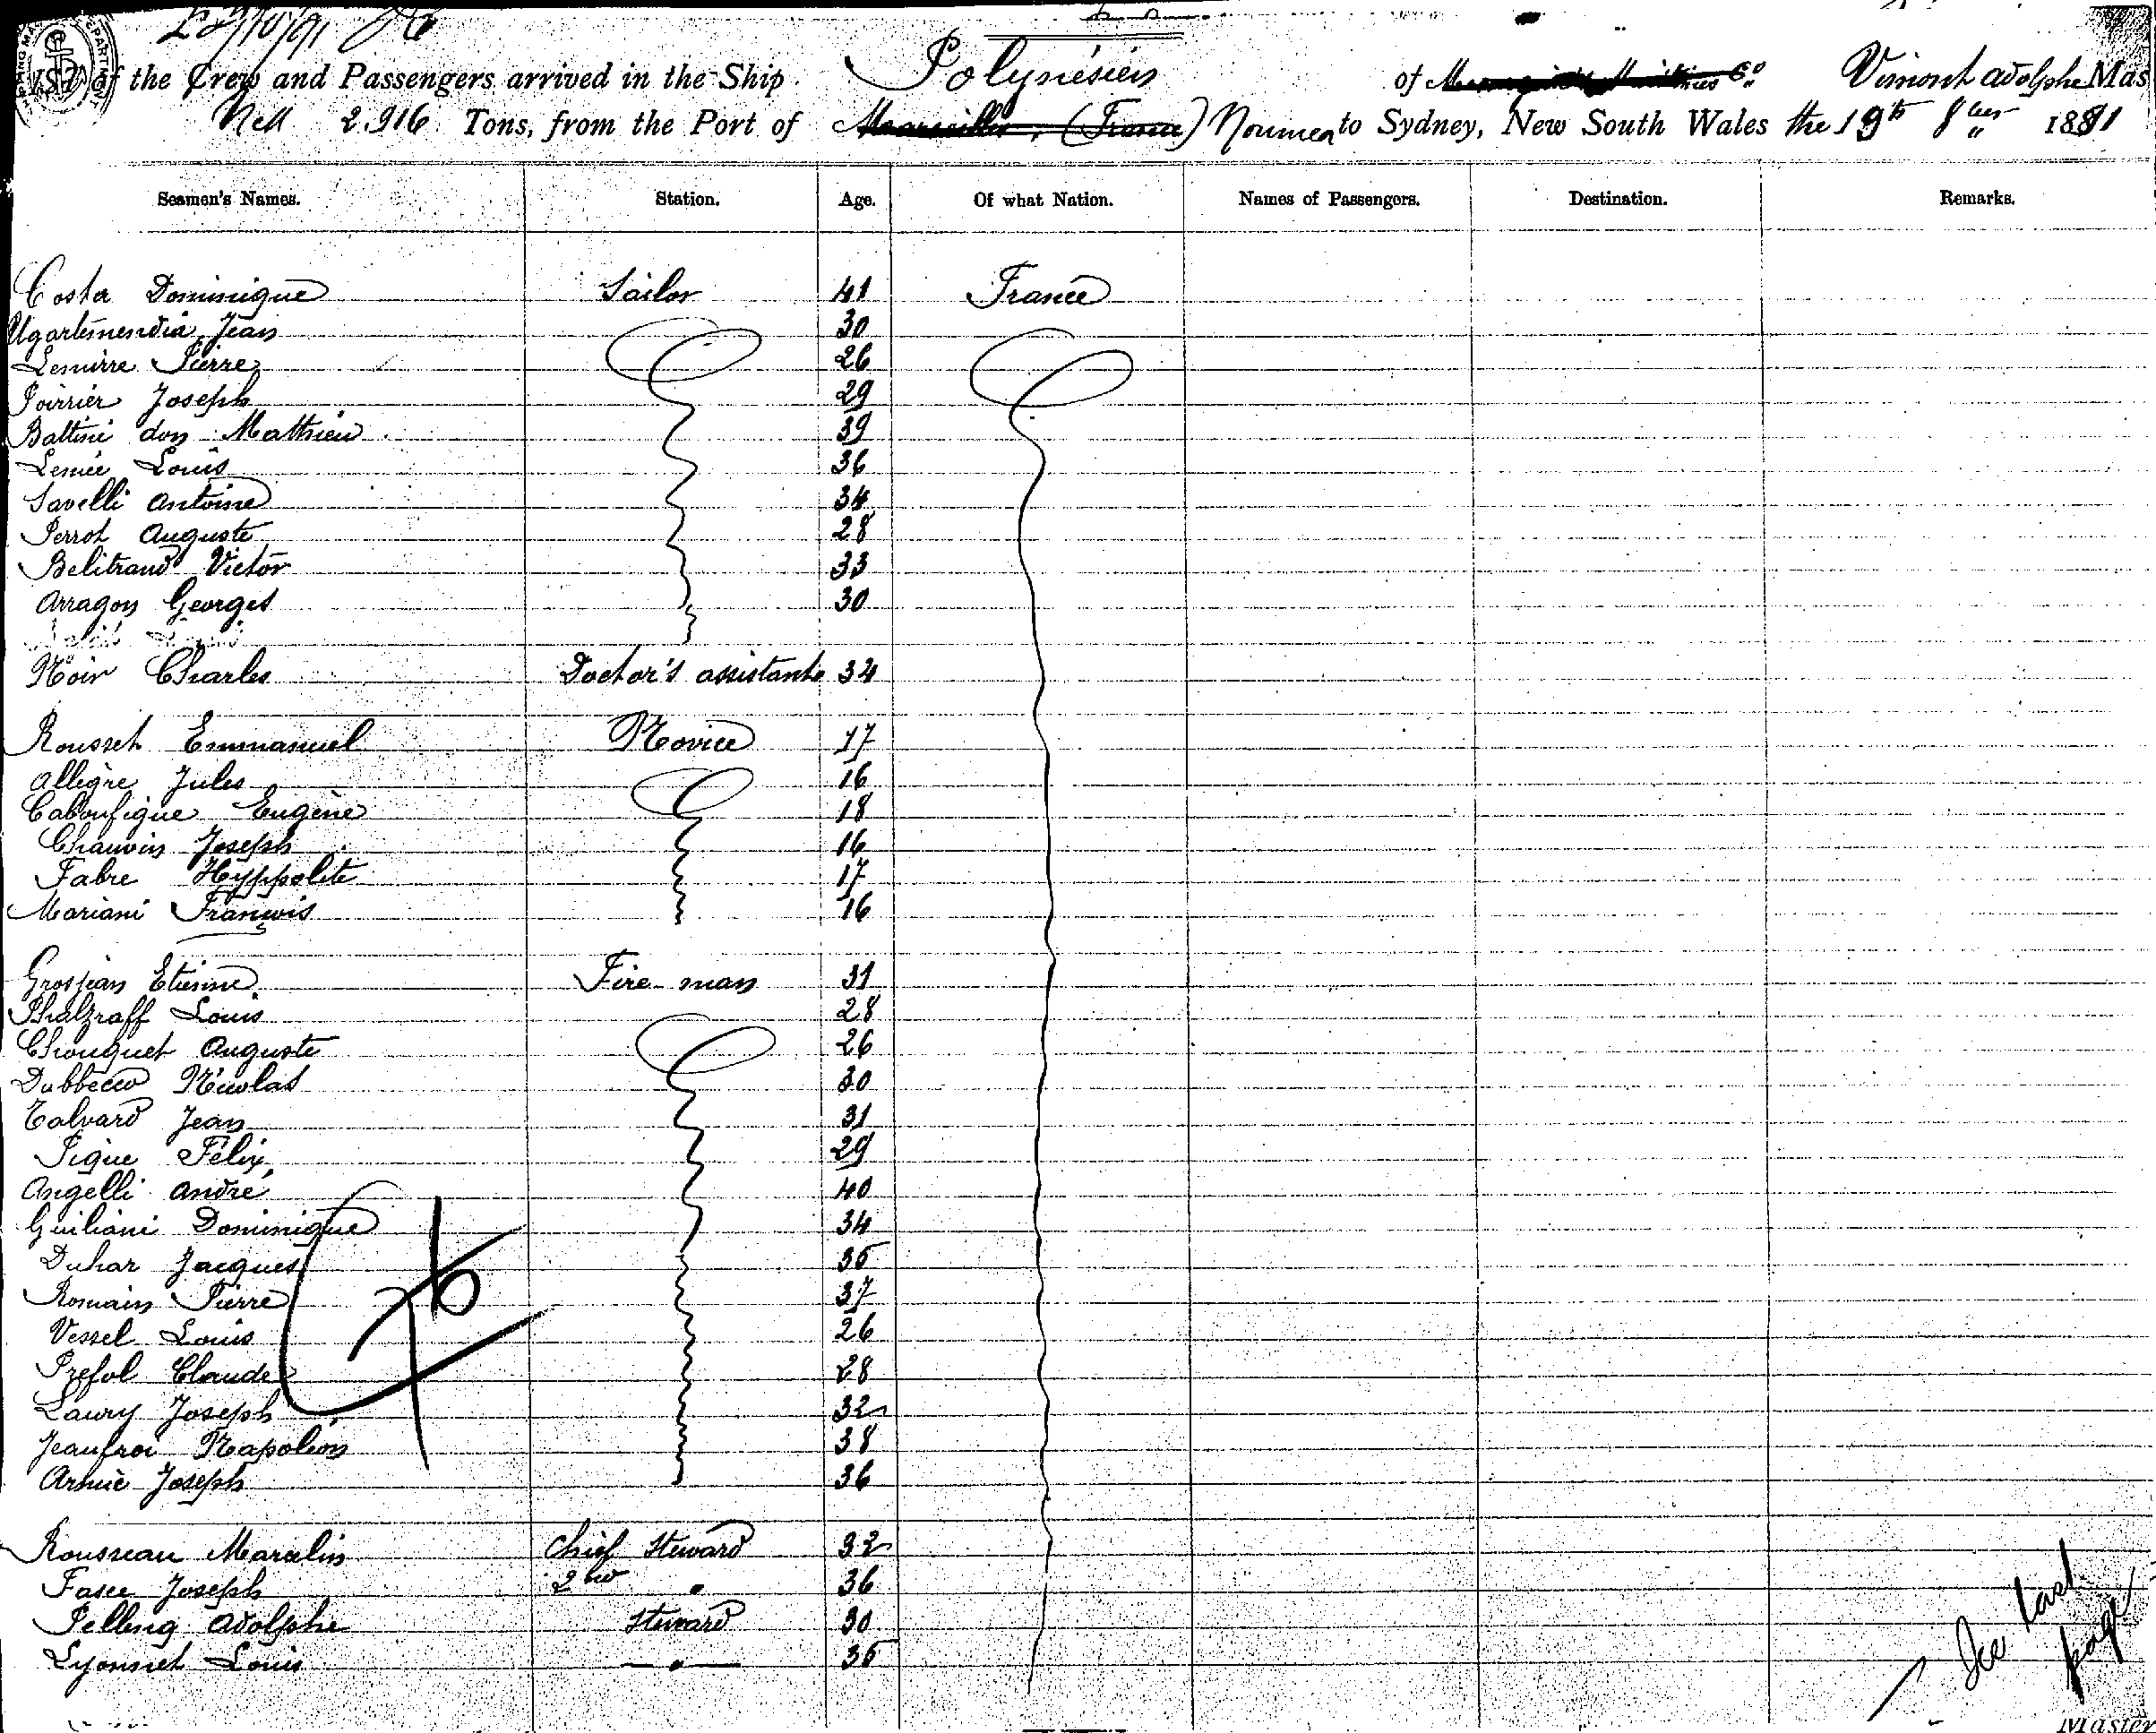 LIST of the Crew and Passengers arrived in the Ship Polynésien of Vimont Adolphe Mas
Nett 2.916 Tons, from the Port of Marseilles, (France) Noumea to Sydney, New South Wales the 19th 8ber 1891
Seamen's Names. Station. Age. Of what Nation. Names of Passengers. Destination. Remarks.
Costa Dominique Sailor 41 France
Ugartemendia Jean 30
Lemirre Pierre 26
Poirrier Joseph 29
Battini don Mathieu 39
Lemée Louis 36
Savelli Antoine 34
Perrot Auguste 28
Belitrand Victor 33
Arragon Georges 30
Noir Charles Doctor's assistant 34
Rousset Emmanuel Novice 17
Allegre Jules 16
Caboufigue Eugène 18
Chauvin Joseph 16
Fabre Hyppolite 17
Mariani François 16
Grosjean Etienne Fire-man 31
Phalzraff Louis 28
Chouquet Auguste 26
Dubbecco Nicolas 30
Talvard Jean 31
Pigue Félix 29
Angelli André 40
Guiliani Dominique 34
Duhar Jacques 35
Romain Pierre 37
Vessel Louis 26
Prefol Claude 28
Laury Joseph 32
Jeaufroi Napoléon 38
Armié Joseph 36
Rousseau Marcelin Chief Steward 32
Fasce Joseph 2nd " 36
Pelling Adolphe Steward 30
Lyonnet Louis " 35
See last page
Master